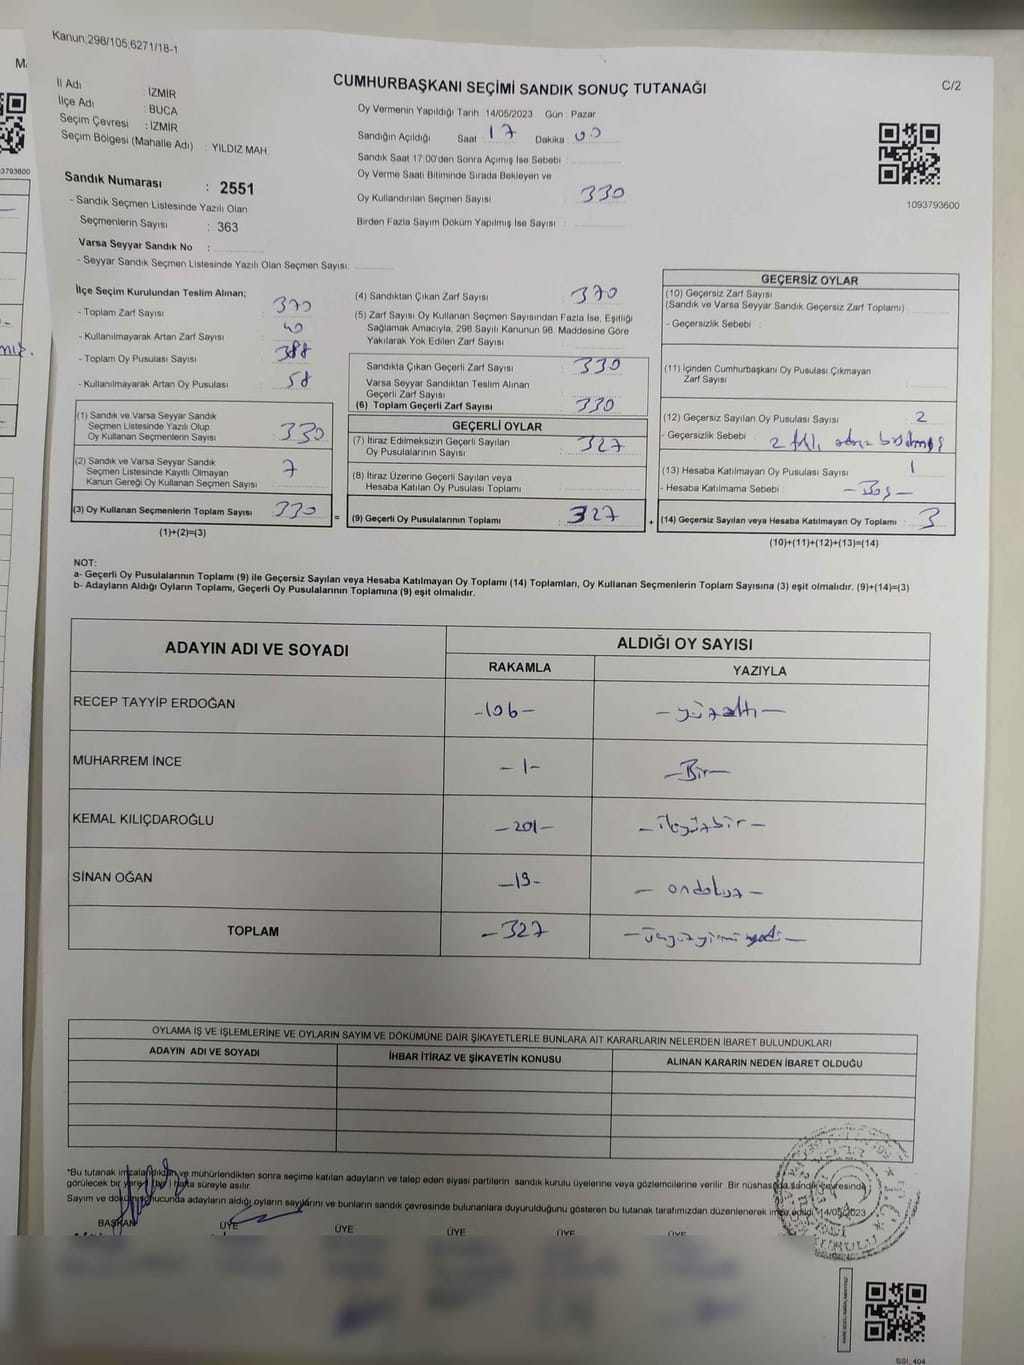 Kanun;298/105;6271/18-1
CUMHURBAŞKANI SEÇİMİ SANDIK SONUÇ TUTANAĞI
C/2
İl Adı : İZMİR
İlçe Adı : BUCA
Seçim Çevresi : İZMİR
Seçim Bölgesi (Mahalle Adı) : YILDIZ MAH.
Sandık Numarası : 2551
- Sandık Seçmen Listesinde Yazılı Olan
Seçmenlerin Sayısı : 363
Varsa Seyyar Sandık No :
- Seyyar Sandık Seçmen Listesinde Yazılı Olan Seçmen Sayısı:
Oy Vermenin Yapıldığı Tarih 14/05/2023 Gün : Pazar
Sandığın Açıldığı Saat : 17 Dakika : 00
Sandık Saat 17.00'den Sonra Açımış İse Sebebi :
Oy Verme Saati Bitiminde Sırada Bekleyen ve
Oy Kullandırılan Seçmen Sayısı : 330
Birden Fazla Sayım Döküm Yapılmış İse Sayısı :
1093793600
İlçe Seçim Kurulundan Teslim Alınan;
- Toplam Zarf Sayısı : 370
- Kullanılmayarak Artan Zarf Sayısı : 40
- Toplam Oy Pusulası Sayısı : 388
- Kullanılmayarak Artan Oy Pusulası : 58
(1) Sandık ve Varsa Seyyar Sandık
Seçmen Listesinde Yazılı Olup
Oy Kullanan Seçmenlerin Sayısı : 330
(2) Sandık ve Varsa Seyyar Sandık
Seçmen Listesinde Kayıtlı Olmayan
Kanun Gereği Oy Kullanan Seçmen Sayısı : 7
(3) Oy Kullanan Seçmenlerin Toplam Sayısı : 330
(1)+(2)=(3)
=
(4) Sandıktan Çıkan Zarf Sayısı : 370
(5) Zarf Sayısı Oy Kullanan Seçmen Sayısından Fazla İse, Eşitliği
Sağlamak Amacıyla, 298 Sayılı Kanunun 98. Maddesine Göre
Yakılarak Yok Edilen Zarf Sayısı :
Sandıkta Çıkan Geçerli Zarf Sayısı : 330
Varsa Seyyar Sandıktan Teslim Alınan
Geçerli Zarf Sayısı :
(6) Toplam Geçerli Zarf Sayısı : 330
GEÇERLİ OYLAR
(7) İtiraz Edilmeksizin Geçerli Sayılan
Oy Pusulalarının Sayısı : 327
(8) İtiraz Üzerine Geçerli Sayılan veya
Hesaba Katılan Oy Pusulası Toplamı :
(9) Geçerli Oy Pusulalarının Toplamı : 327
+
GEÇERSİZ OYLAR
(10) Geçersiz Zarf Sayısı
(Sandık ve Varsa Seyyar Sandık Geçersiz Zarf Toplamı) :
- Geçersizlik Sebebi :
(11) İçinden Cumhurbaşkanı Oy Pusulası Çıkmayan
Zarf Sayısı :
(12) Geçersiz Sayılan Oy Pusulası Sayısı : 2
- Geçersizlik Sebebi : 2
(13) Hesaba Katılmayan Oy Pusulası Sayısı : 1
- Hesaba Katılmama Sebebi : -Boş-
(14) Geçersiz Sayılan veya Hesaba Katılmayan Oy Toplamı : 3
(10)+(11)+(12)+(13)=(14)
NOT:
a- Geçerli Oy Pusulalarının Toplamı (9) ile Geçersiz Sayılan veya Hesaba Katılmayan Oy Toplamı (14) Toplamları, Oy Kullanan Seçmenlerin Toplam Sayısına (3) eşit olmalıdır. (9)+(14)=(3)
b- Adayların Aldığı Oyların Toplamı, Geçerli Oy Pusulalarının Toplamına (9) eşit olmalıdır.
ADAYIN ADI VE SOYADI
ALDIĞI OY SAYISI
RAKAMLA YAZIYLA
RECEP TAYYİP ERDOĞAN -106- -yüzaltı-
MUHARREM İNCE -1- -Bir-
KEMAL KILIÇDAROĞLU -201- -ikiyüzbir-
SİNAN OĞAN -19- -ondokuz-
TOPLAM -327 -üçyüzyirmiyedi-
OYLAMA İŞ VE İŞLEMLERİNE VE OYLARIN SAYIM VE DÖKÜMÜNE DAİR ŞİKAYETLERLE BUNLARA AİT KARARLARIN NELERDEN İBARET BULUNDUKLARI
ADAYIN ADI VE SOYADI İHBAR İTİRAZ VE ŞİKAYETİN KONUSU ALINAN KARARIN NEDEN İBARET OLDUĞU
*Bu tutanak imzalandıktan ve mühürlendikten sonra seçime katılan adayların ve talep eden siyasi partilerin sandık kurulu üyelerine veya gözlemcilerine verilir. Bir nüshası da sandık çevresinde
görülecek bir yere (bir) hafta süreyle asılır.
Sayım ve döküm sonucunda adayların aldığı oyların sayılarını ve bunların sandık çevresinde bulunanlara duyurulduğunu gösteren bu tutanak tarafımızdan düzenlenerek imza edildi. 14/05/2023
BAŞKAN ÜYE ÜYE ÜYE ÜYE ÜYE
SSI_404